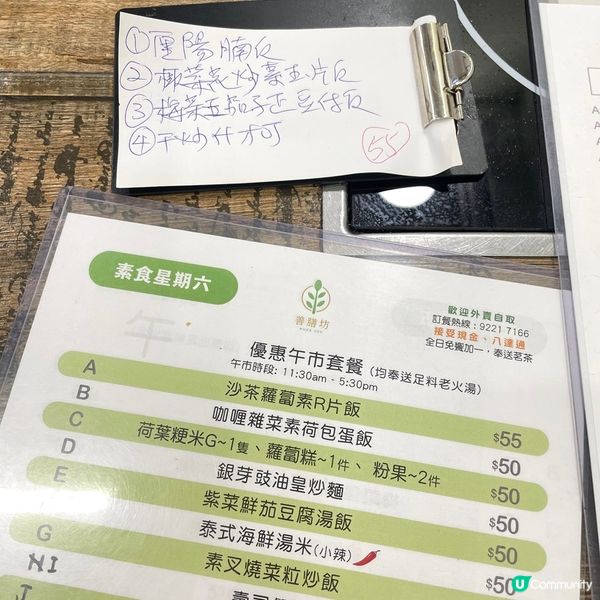 ① 陽腩反
② 菜花炒片反
③ 梅菜茄子豆付反
④ 干炒什
55
素食星期六
善膳坊
歡迎外賣自取
訂餐熱線：9221 7166
接受現金、八達通
全日免費加一，奉送茗茶
午
優惠午市套餐 (均奉送足料老火湯)
午市時段: 11:30am - 5:30pm
A 沙茶蘿蔔素R片飯 $55
B 咖喱雜菜素荷包蛋飯 $50
C 荷葉粳米G~1隻、蘿蔔糕~1件、粉果~2件 $50
D 銀芽豉油皇炒麵 $50
E 紫菜鮮茄豆腐湯飯 $50
泰式海鮮湯米(小辣) $50
G 素叉燒菜粒炒飯 $50
HI
J
U Community